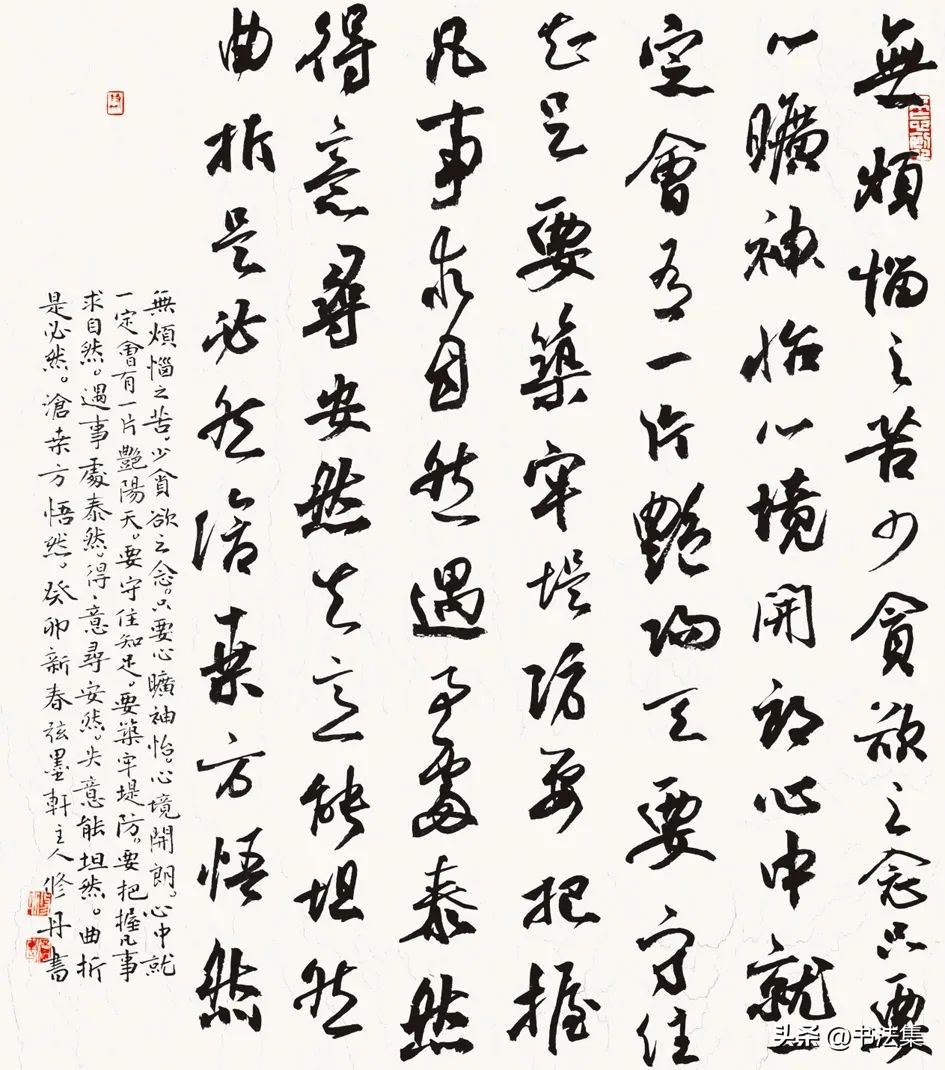 無煩惱之苦少貪欲之念只要
心曠神怡心境開朗心中就一
定會有一片艷陽天要守住
知足要築牢堤防要把握
凡事求自然遇事處泰然
得意尋安然失意能坦然
曲折是必然滄桑方悟然
無煩惱之苦,少貪欲之念。只要心曠神怡。心境開朗。心中就
一定會有一片艷陽天。要守住知足。要築牢堤防。要把握凡事
求自然。遇事處泰然。得、意尋安然。失意能坦然。曲折
是必然。滄桑方悟然。癸卯新春弦墨軒主人修丹書
头条 @书法集